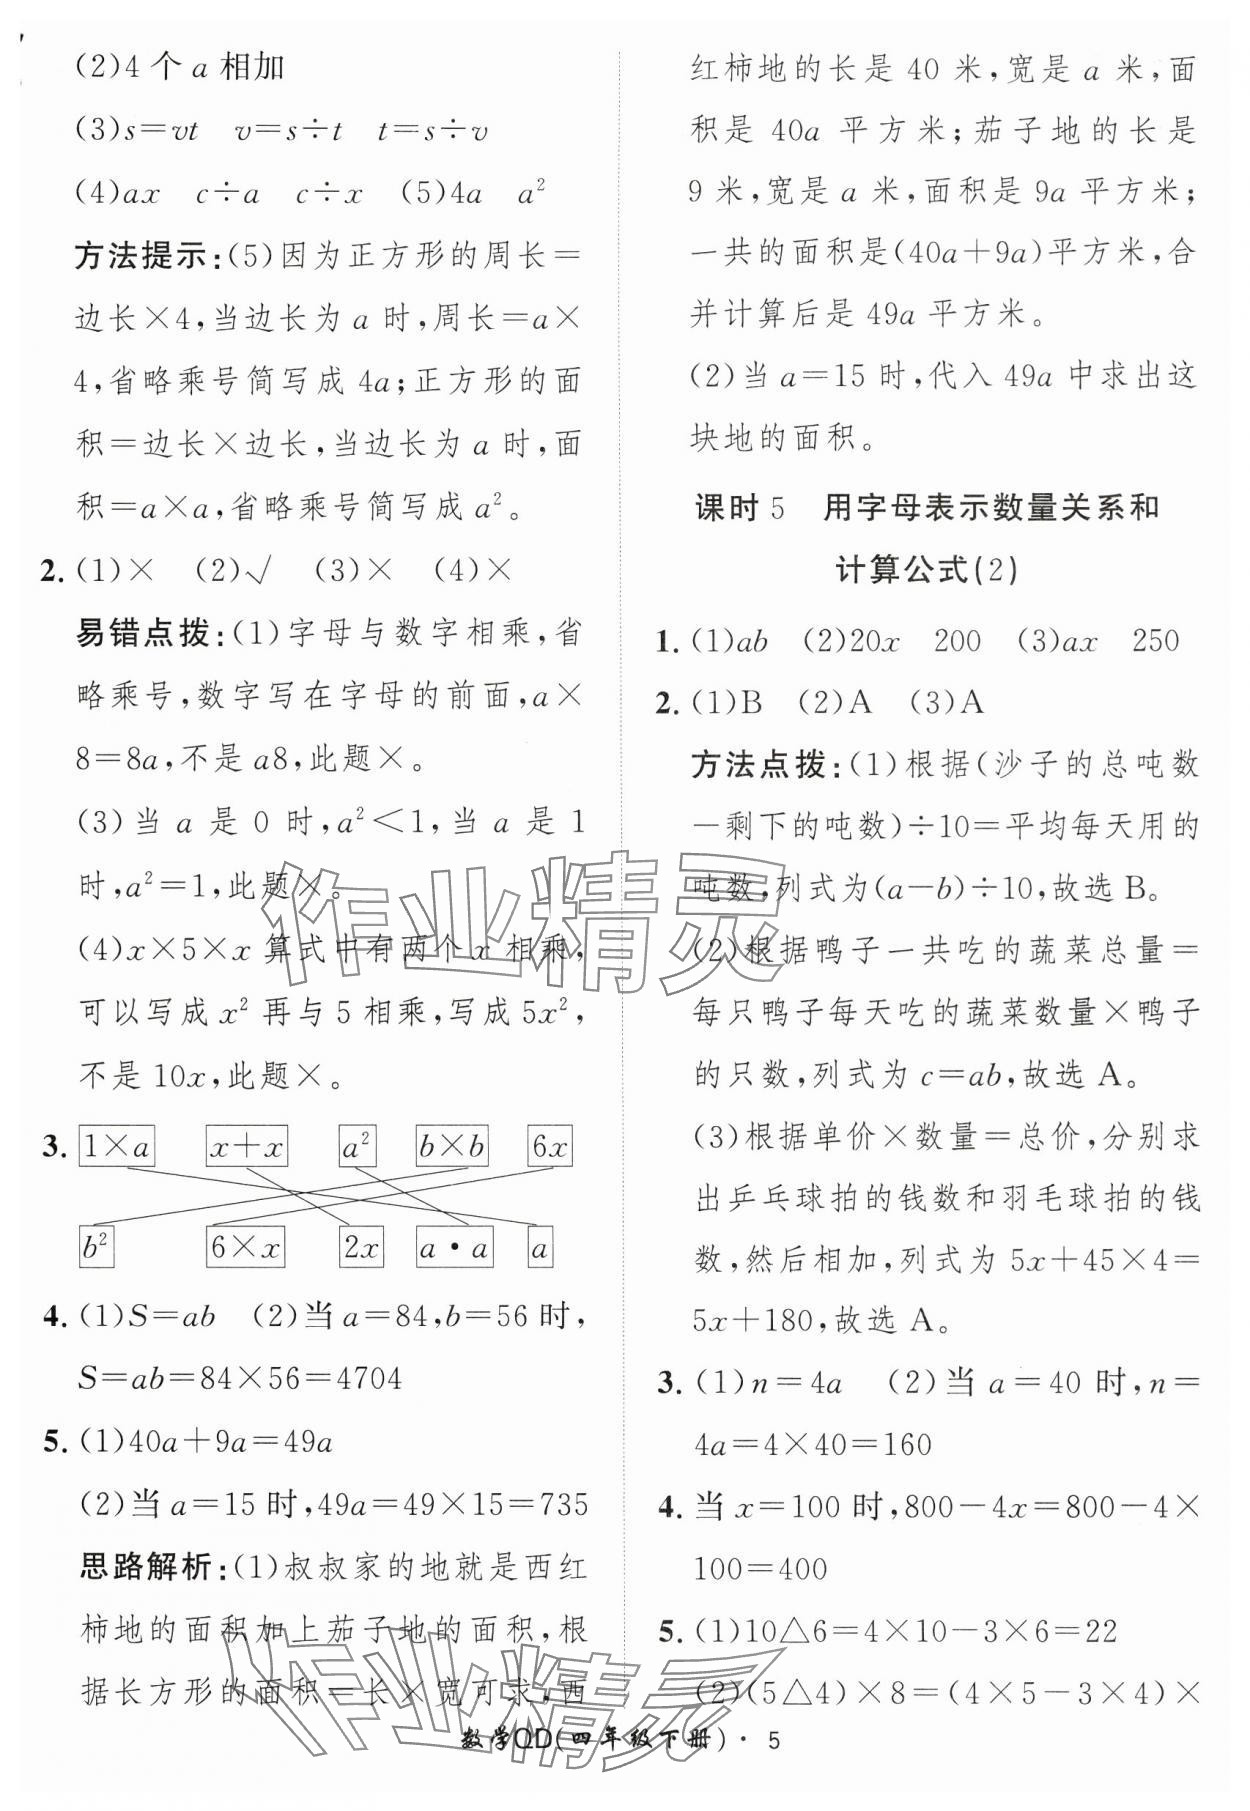 (2)4 个 a 相加
(3)s=vt v=s÷t t=s÷v
(4)ax c÷a c÷x (5)4a a²
方法提示:(5)因为正方形的周长=
边长×4,当边长为 a 时,周长=a×
4,省略乘号简写成 4a;正方形的面
积=边长×边长,当边长为 a 时,面
积=a×a,省略乘号简写成 a²。
2. (1)× (2)√ (3)× (4)×
易错点拨:(1)字母与数字相乘,省
略乘号,数字写在字母的前面,a×
8=8a,不是 a8,此题×。
(3)当 a 是 0 时,a²<1,当 a 是 1
时,a²=1,此题×。
(4)x×5×x 算式中有两个 x 相乘,
可以写成 x² 再与 5 相乘,写成 5x²,
不是 10x,此题×。
3. 1×a x+x a² b×b 6x
b² 6×x 2x a·a a
4. (1)S=ab (2)当 a=84,b=56 时,
S=ab=84×56=4704
5. (1)40a+9a=49a
(2)当 a=15 时,49a=49×15=735
思路解析:(1)叔叔家的地就是西红
柿地的面积加上茄子地的面积,根
据长方形的面积=长×宽可求,西
红柿地的长是 40 米,宽是 a 米,面
积是 40a 平方米;茄子地的长是
9 米,宽是 a 米,面积是 9a 平方米;
一共的面积是(40a+9a)平方米,合
并计算后是 49a 平方米。
(2)当 a=15 时,代入 49a 中求出这
块地的面积。
课时 5 用字母表示数量关系和
计算公式(2)
1. (1)ab (2)20x 200 (3)ax 250
2. (1)B (2)A (3)A
方法点拨:(1)根据(沙子的总吨数
-剩下的吨数)÷10=平均每天用的
吨数,列式为(a-b)÷10,故选 B。
(2)根据鸭子一共吃的蔬菜总量=
每只鸭子每天吃的蔬菜数量×鸭子
的只数,列式为 c=ab,故选 A。
(3)根据单价×数量=总价,分别求
出乒乓球拍的钱数和羽毛球拍的钱
数,然后相加,列式为 5x+45×4=
5x+180,故选 A。
3. (1)n=4a (2)当 a=40 时,n=
4a=4×40=160
4. 当 x=100 时,800-4x=800-4×
100=400
5. (1)10△6=4×10-3×6=22
(2)(5△4)×8=(4×5-3×4)×
数学QD(四年级下册)·5
作业精灵
作业精灵